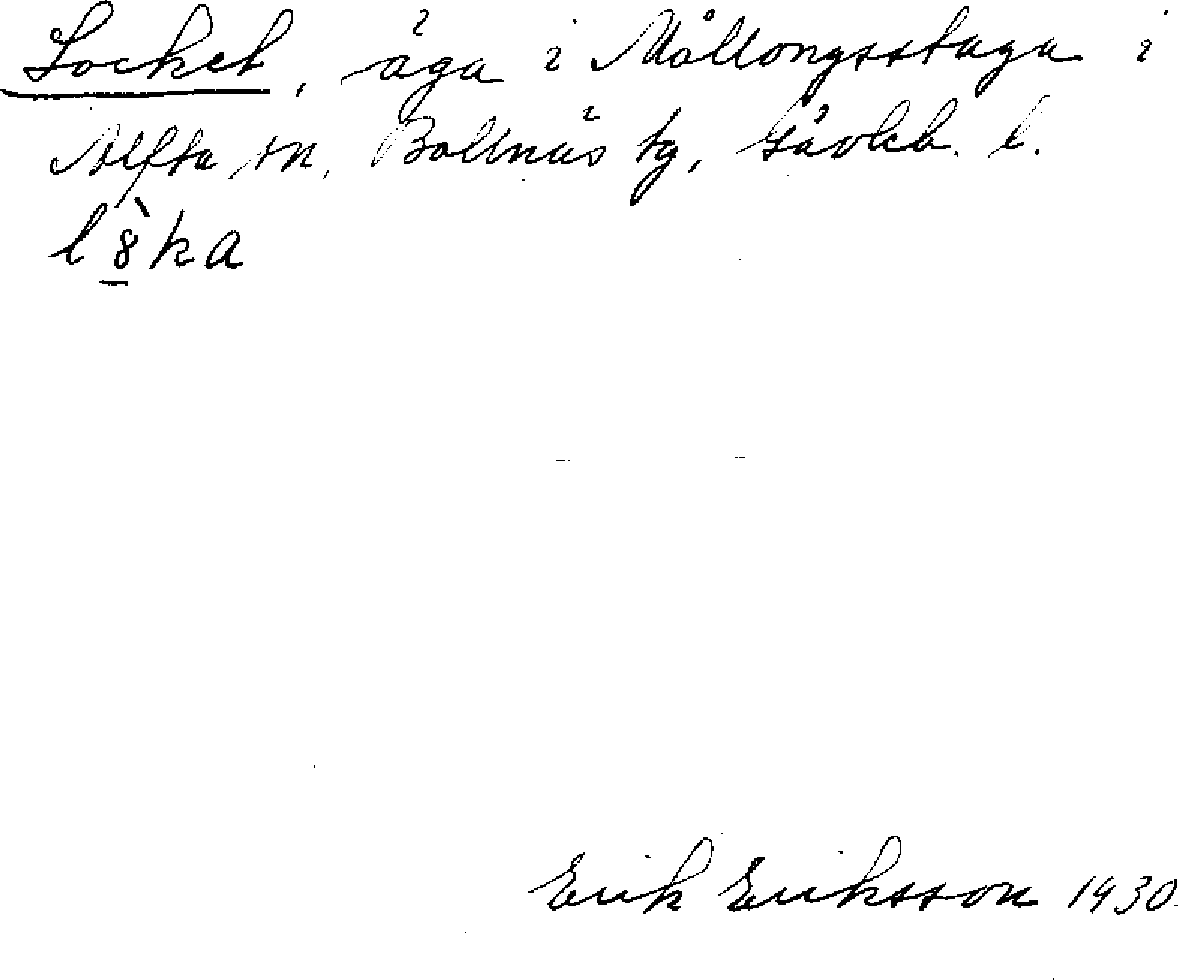 Locket, äga i Mållongsstuga i
Alfta sn, Bollnäs tg, Gävleb. l.
l8̀ka
Erik Eriksson 1930.